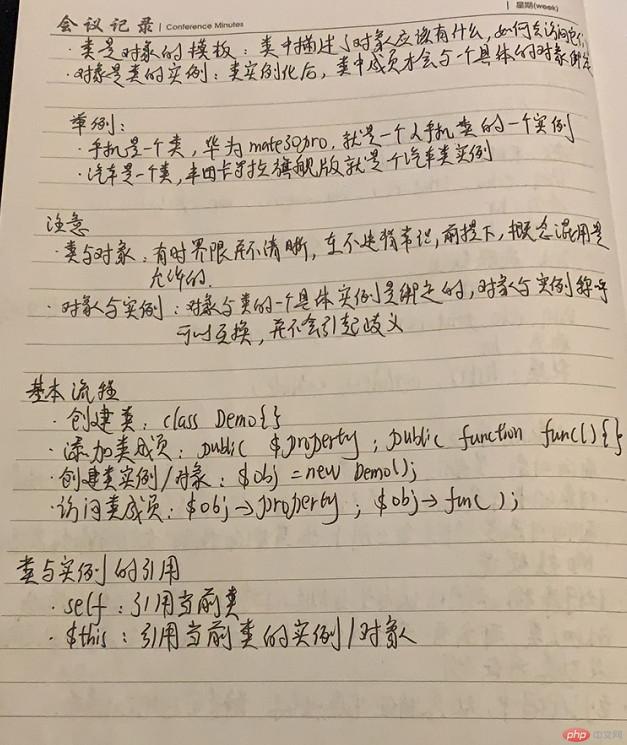 会议记录 | Conference Minutes
星期(week)
· 类是对象的模板：类中描述了对象应该有什么，如何去访问它们
· 对象是类的实例：类实例化后，类中成员才会与一个具体的对象绑定
举例：
· 手机是一个类，华为mate30pro，就是一个人手机类的一个实例
· 汽车是一个类，丰田卡罗拉旗舰版就是个汽车类实例
注意
· 类与对象：有时界限并不清晰，在不违背常识，前提下，概念混用是
允许的.
· 对象与实例：对象与类的一个具体实例是绑定的，对象与实例称呼
可以互换，并不会引起歧义
基本流程
· 创建类：class Demo{}
· 添加类成员：public $property；public function func(){}
· 创建类实例/对象：$obj = new Demo();
· 访问类成员：$obj->property；$obj->func();
类与实例的引用
· self：引用当前类
· $this：引用当前类的实例/对象
php 中文网